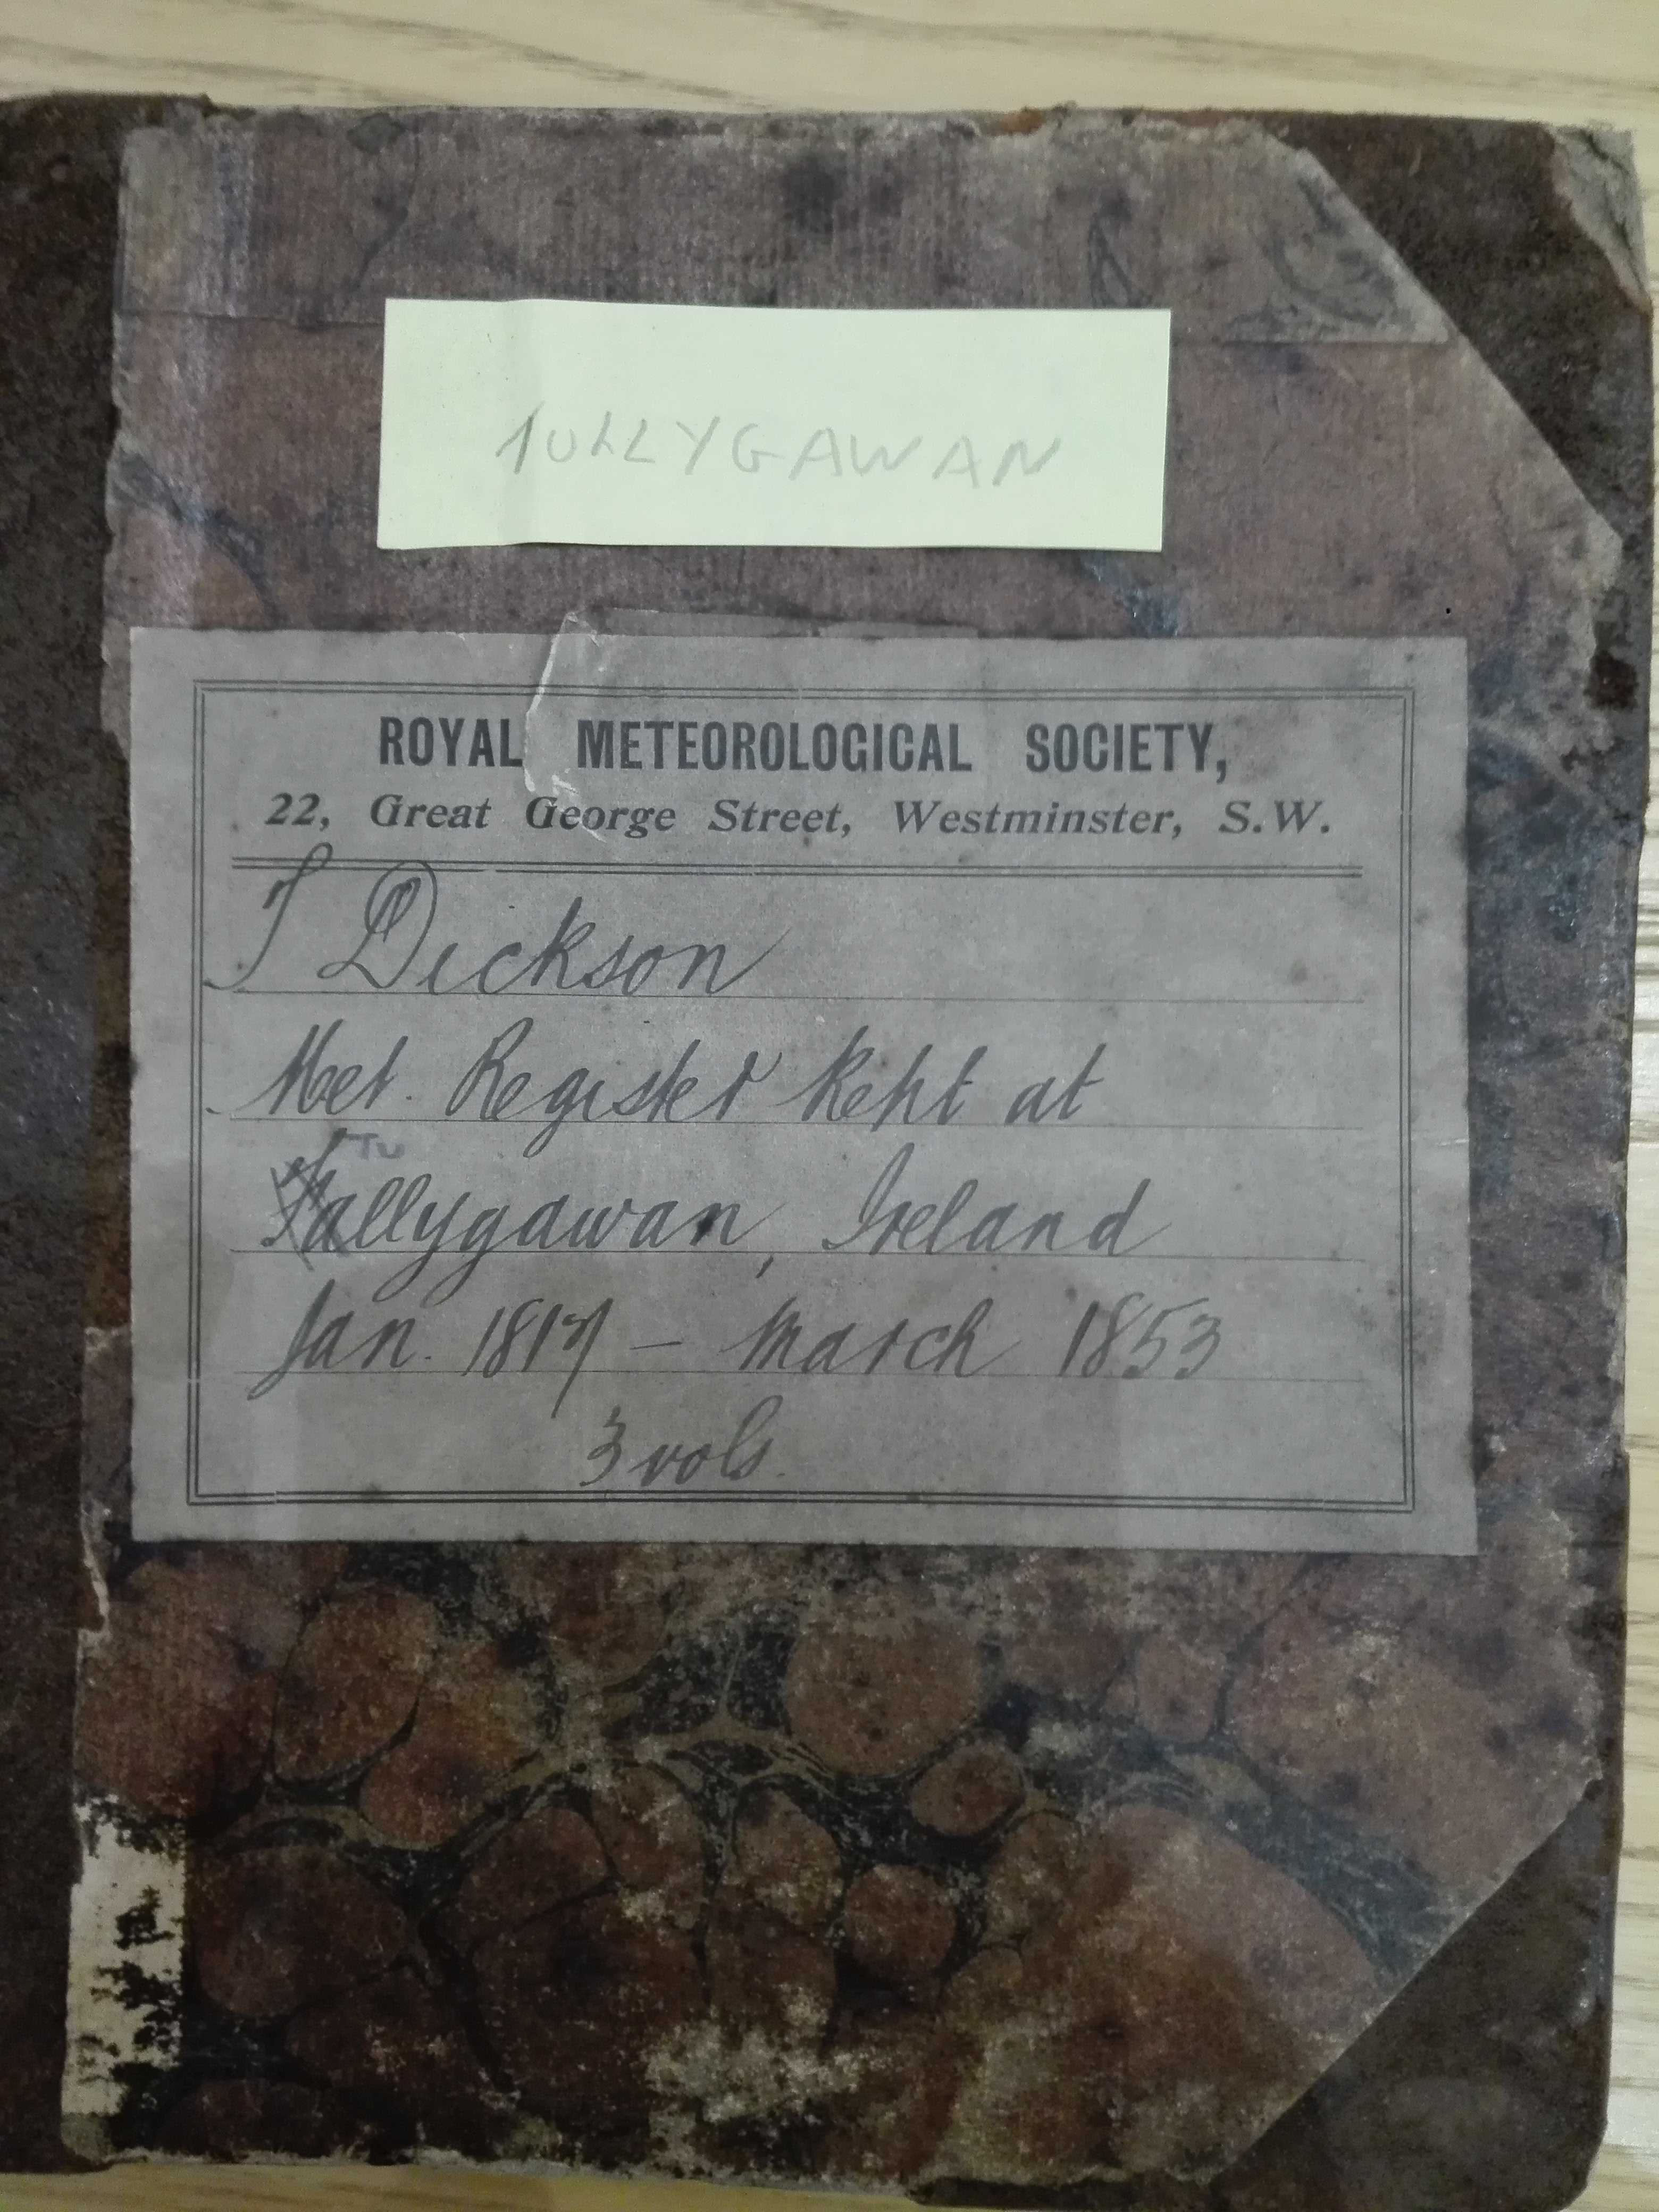 TULLYGAWAN
ROYAL METEOROLOGICAL SOCIETY,
22, Great George Street, Westminster, S.W.
T Dickson
Met. Register kept at
Tu
Tallygawan, Ireland
Jan. 1817 – March 1853
3 vols.